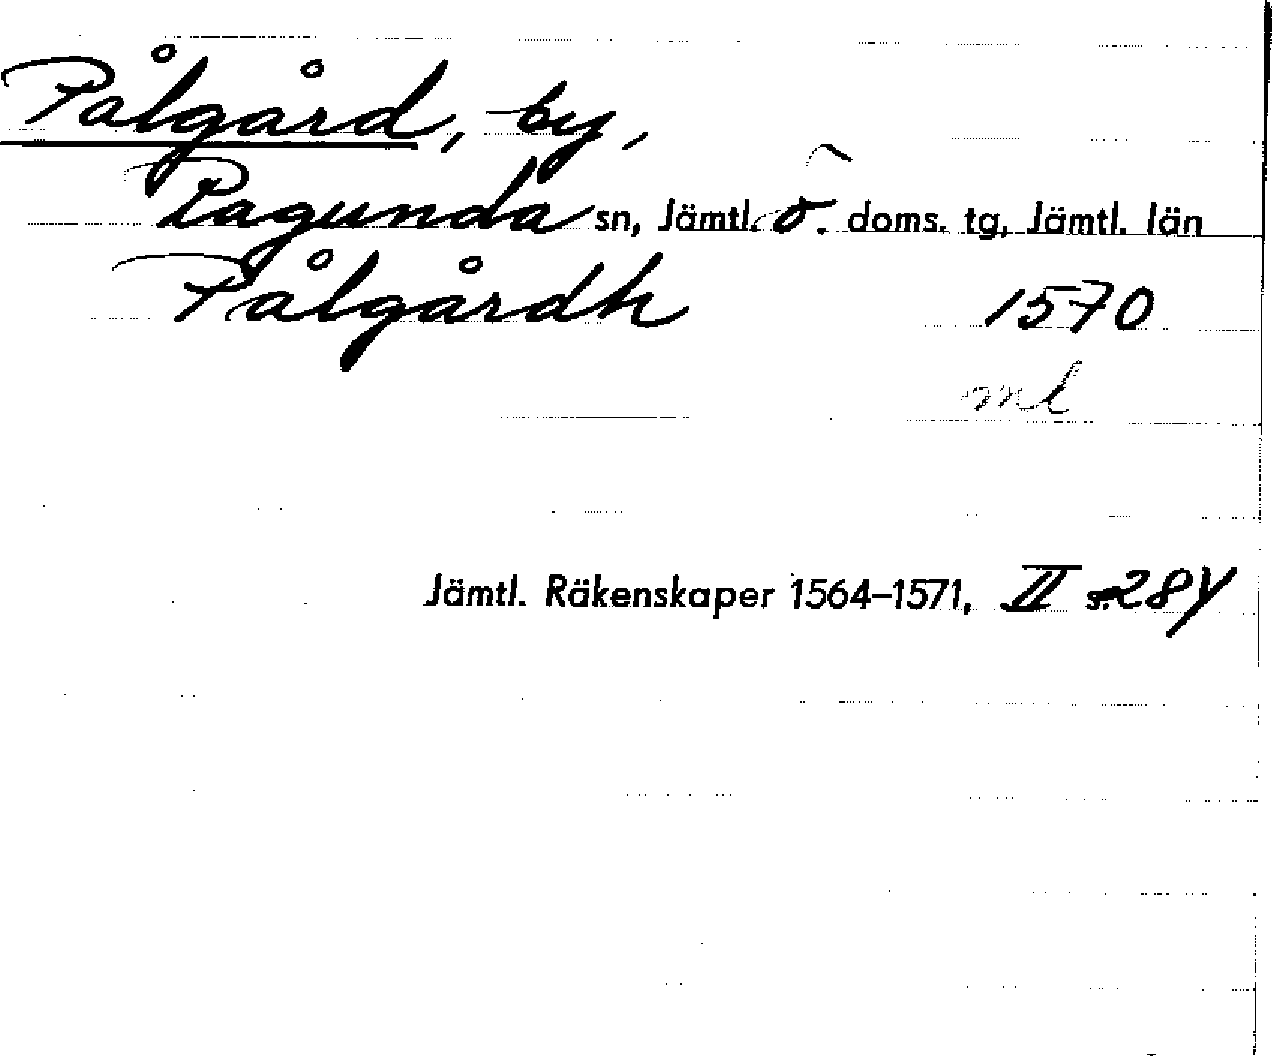 Pålgård, by,
Ragunda sn, Jämtl. ö. doms. tg, Jämtl. län
Pålgårdh 1570
ml
Jämtl. Räkenskaper 1564–1571, II s. 284